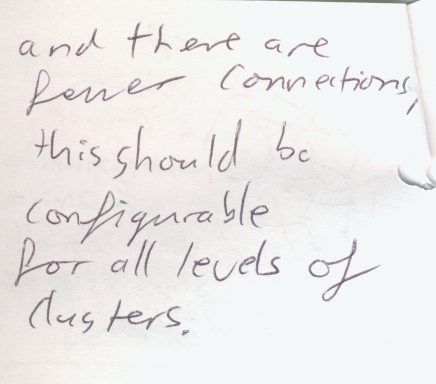 and there are
fewer connections,
this should be
configurable
for all levels of
clusters.